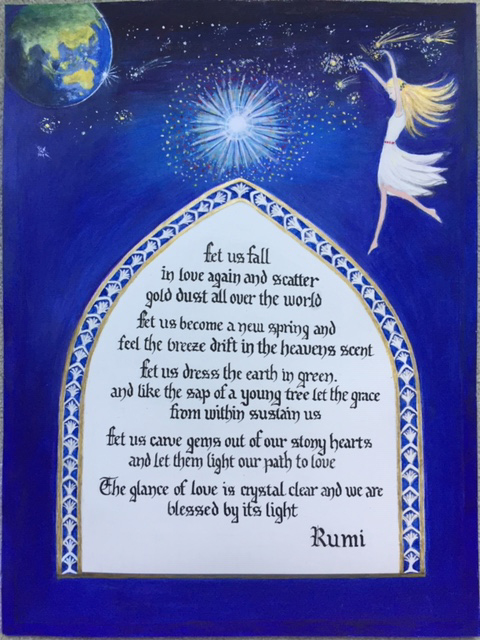 Let us fall
in love again and scatter
gold dust all over the world
Let us become a new spring and
feel the breeze drift in the heavens scent
Let us dress the earth in green.
and like the sap of a young tree let the grace
from within sustain us
Let us carve gems out of our stony hearts
and let them light our path to love
The glance of love is crystal clear and we are
blessed by its light
Rumi